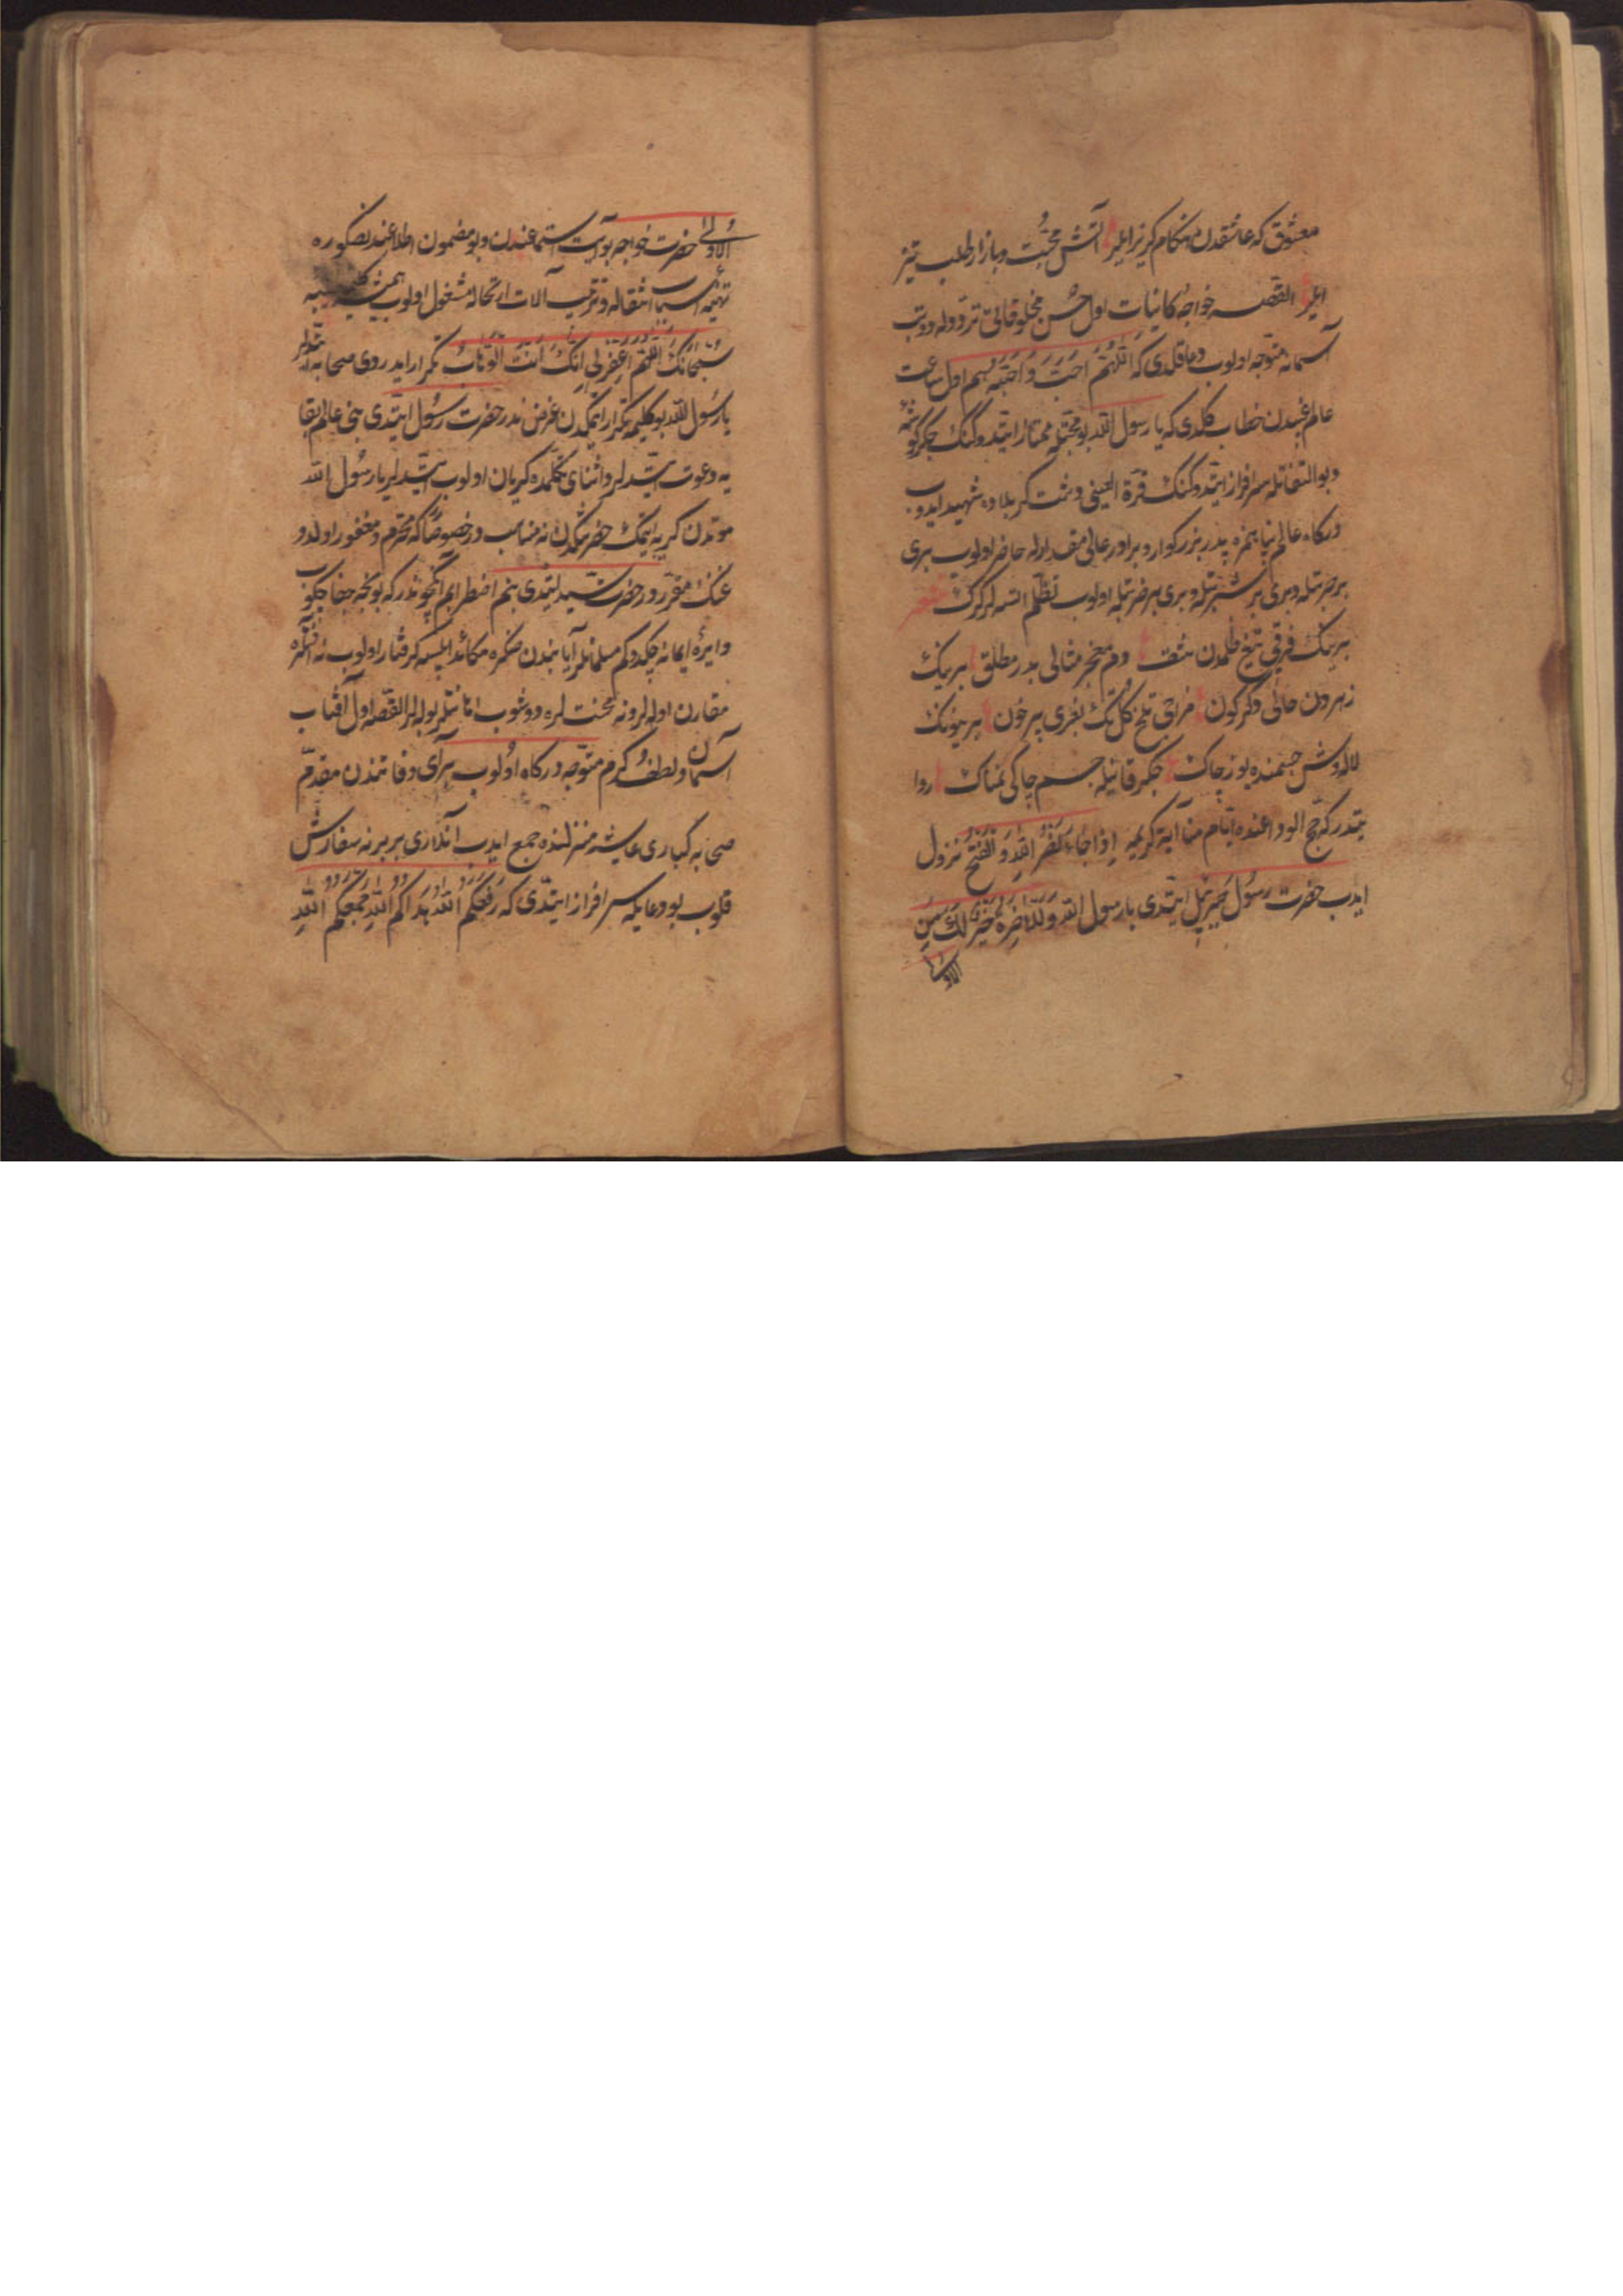 معشوق که عاشقدن هنکام کریز ایلر آتش محبت و بازار طلب تیز
ایلر القصه خواجۀ کاینات اول حسن مخلوقاتی دوتوب
آسمانه متوجه اولوب دعا قلدی که اللهم احب واحبهم اول ساعت
عالم غیبدن خطاب کلدی که یا رسول الله بو محبتله ممتاز ایتدوکنک جکر کوشه
وبو التفاتله سرافراز ایتدوکنک قرة العینی دشت کربلاده شهید ایدوب
درکاه عالم پناهمزه پدر بزرکوار و برادر عالی مقدارله حاضر اولوب بری
بر ضربتله وبری بر شربتله وبری بر ضربتله اولوب تظلم ایتسه لر کرک شعر
برینک فرقی تیغ ظلمدن شق دم معجز مثالی بدر مطلق برینک
زهردن حالی دکرکون مزاجی تلخ کل تک بغری پر خون برینونک
لاله وش جسمنده یوز چاک جکر قانیله جسم چاکی نمناک روا
یتدر که حج الوداعنده ایام منا آیة کریمه اذا جاء نصر الله والفتح نزول
ایدب حضرت رسول جبریل ایتدی یا رسول الله وللآخرة خیر لک من
الاولی
الاولی حضرت خواجه بو آیت استماعندن وبو مضمون اطلاعندنصکره
تهیۀ اسباب انتقاله و ترتیب آلات ارتحاله مشغول اولوب همیشه
سبحانک اللهم اغفر لی انک انت الوهاب تکرار ایدردی صحابه ایتدیلر
یا رسول الله بو کلمه تکرار ایتمکدن غرض ندر حضرت رسول ایتدی بنی عالم بقا
یه دعوت ایتدیلر واثنای تکلمده کریان اولوب ایتدیلر یا رسول الله
موتدن کریه ایتمک حضرتکدن نه مناسب در خصوصا که محترم و مغفور اولدو
غنک مقرر در حضرت سید ایتدی بنم اضطرابم انکچوندر که بونجه جفا چکوب
دایرۀ ایمانه چکدوکم مسلمانلر آیا بندن صکره مکائد ابلیسه کرفتار اولوب نه فتنلره
مقارن اولرلر ونه محنتلره دوشوب امانتلر بولرلر القصه اول آفتاب
آسمان ولطف و کرم متوجه درکاه اولوب برای وفاتندن مقدم
صحابه کباری عایشه منزلنده جمع ایدب آنلاری بربرنه سفارش
قلوب بو دعایله سرافراز ایتدی که رفعکم الله هداکم الله جمعکم الله